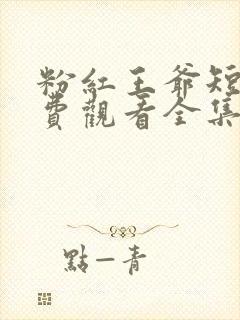 粉紅王爺短
費觀看全集
點一青